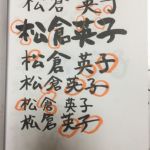 松倉 英子
松倉英子
松倉 英子
松倉 英子
松倉 英子
松倉 英子
松倉 英子